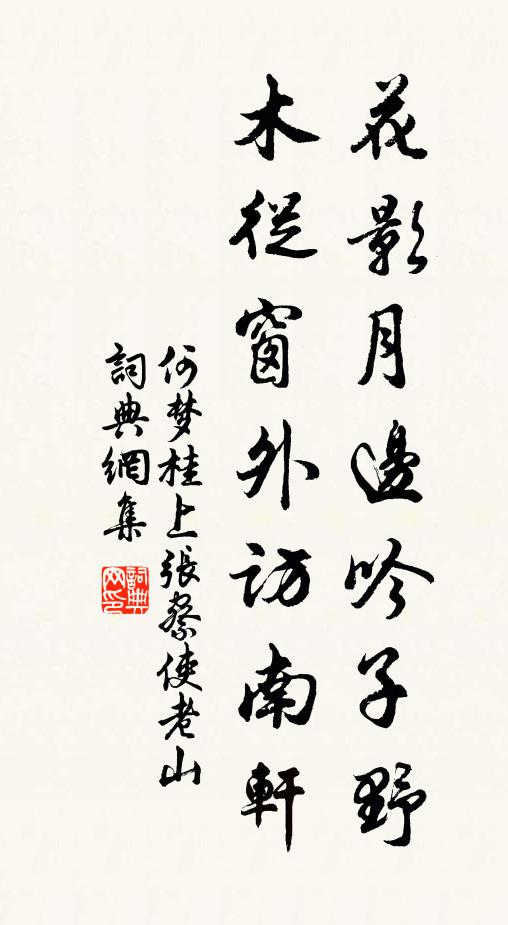 花影月邊吟子野
木從窗外訪南軒
何梦桂上張察使老山
詞典網集
詞典网印